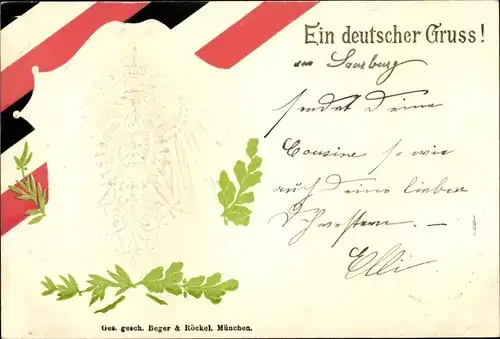 Ein deutscher Gruss!
aus Saarburg
sendet Deine
Cousine so wie
auch Deine lieben
Schwestern. —
Elli
Ges. gesch. Beger & Röckel, München.